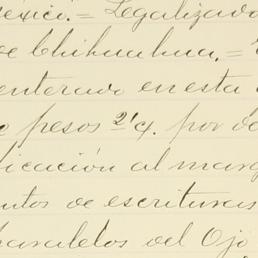 México.= Legalizado
de Chihuahua.=
enterado en esta
pesos 2º/4. por de
icación al marg
ntos de escrituras
haraletos del Ojo